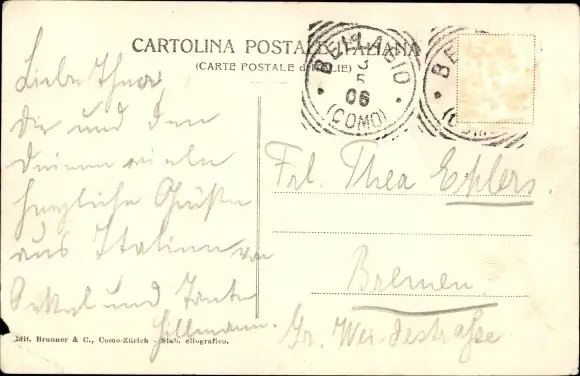 CARTOLINA POSTALE ITALIANA
(CARTE POSTALE d'ITALIE)
BELLAGIO
5
06
(COMO)
BE
(COM
Liebe Thea
Dir und den
Deinen viele
herzliche Grüße
aus Italien von
Onkel und Tante
Hillmann.
Frl. Thea Ehlers.
Bremen.
Gr. Weidestraße
Edit. Brunner & C., Como-Zürich - Stab. eliografico.